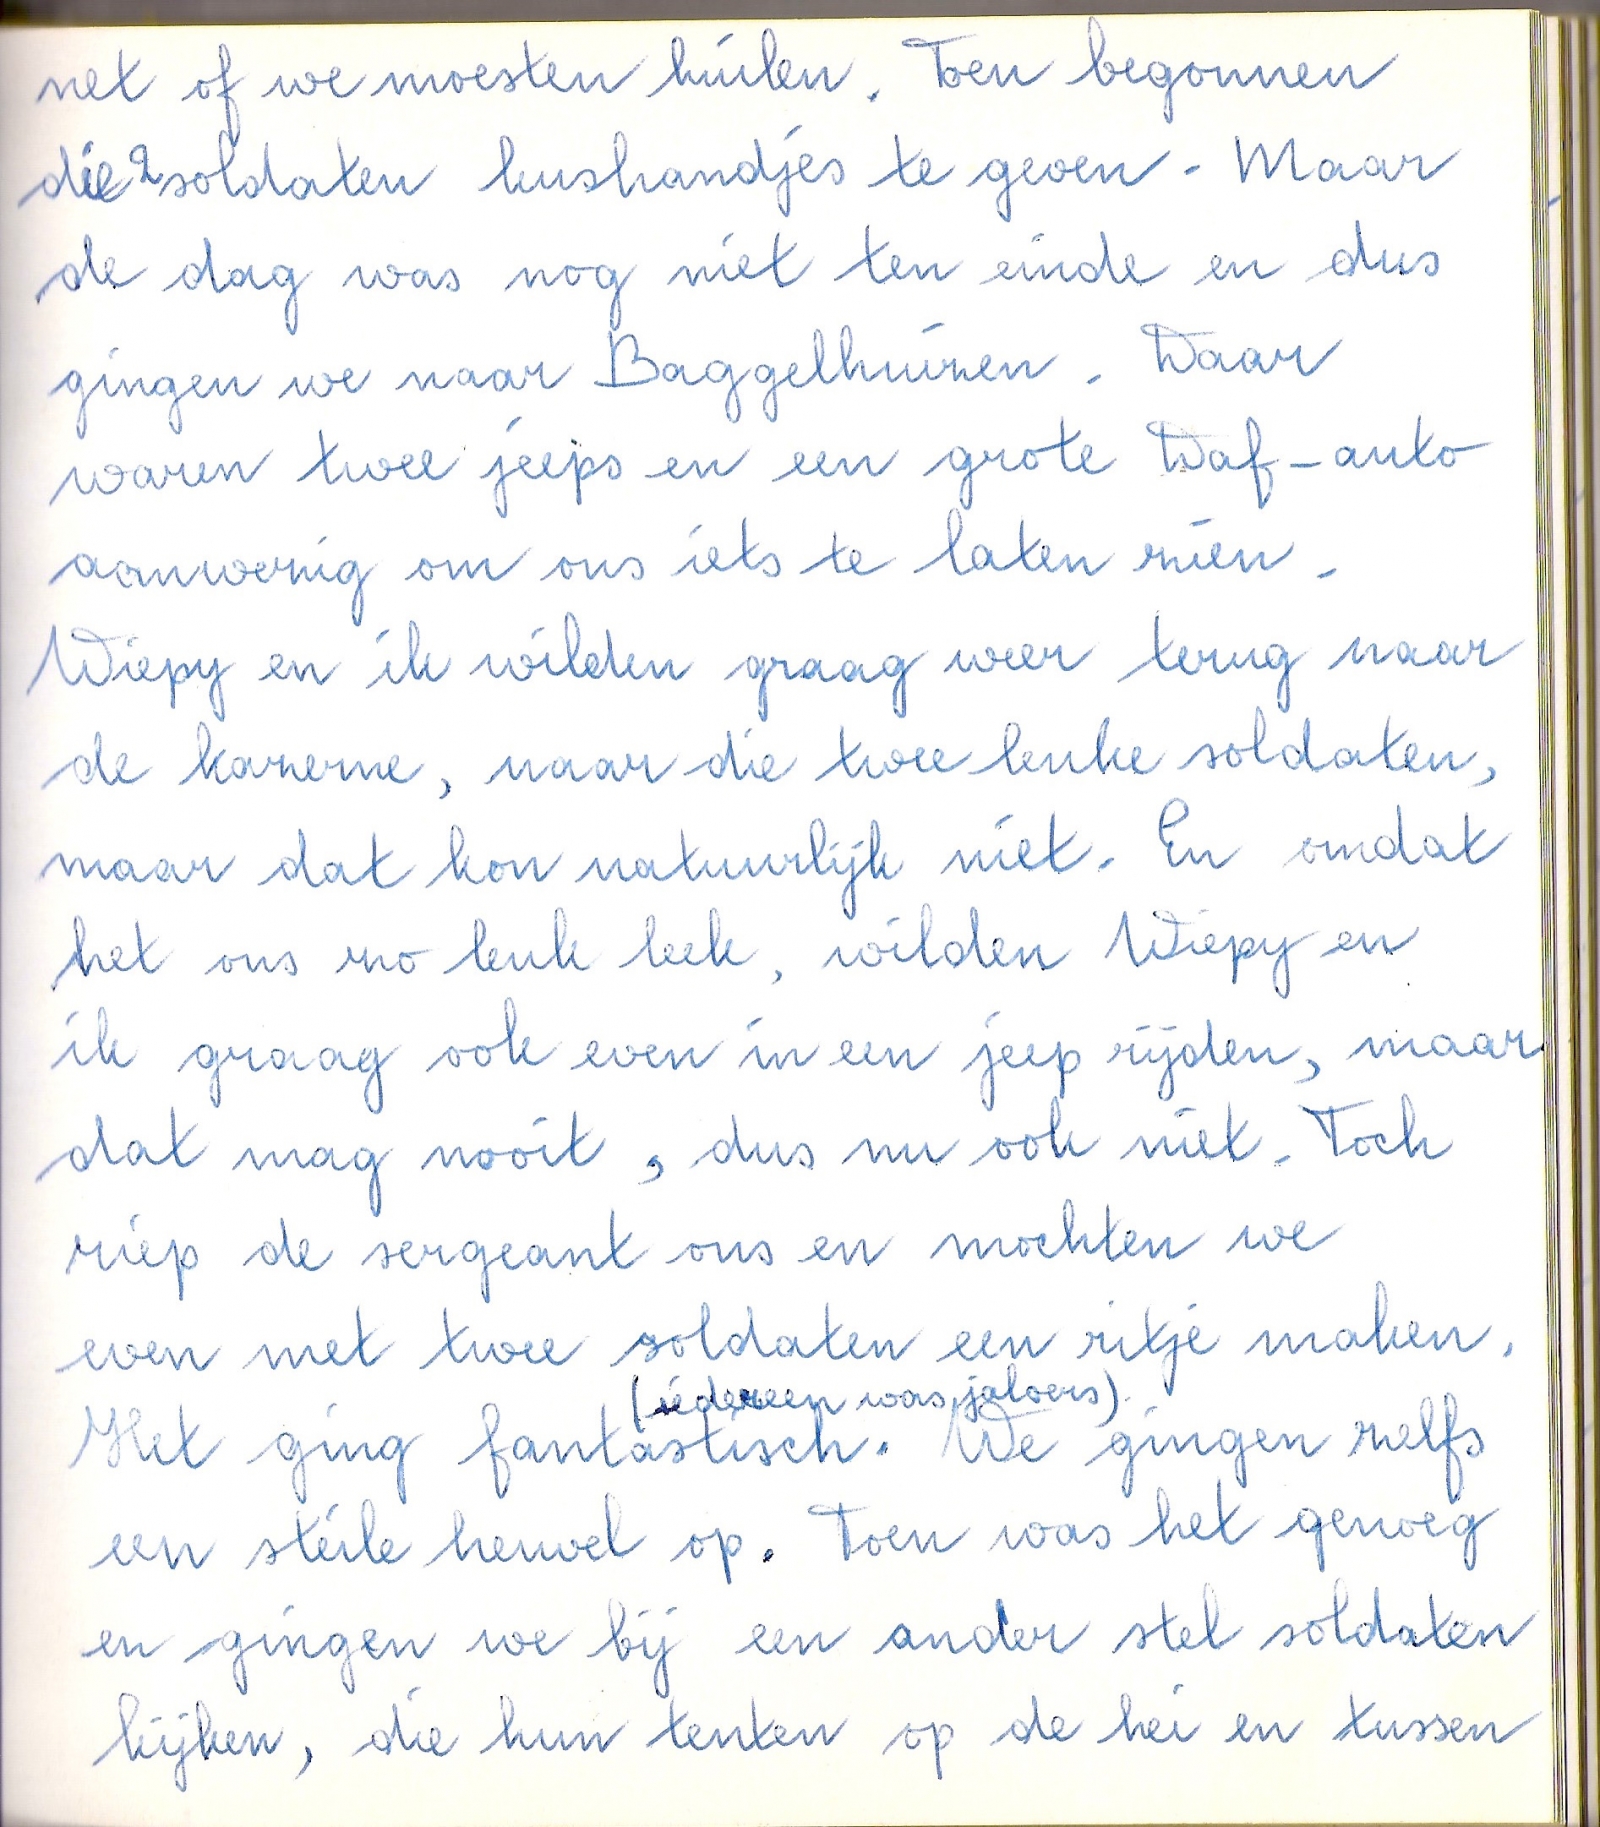 net of we moesten huilen. Toen begonnen
die 2 soldaten kushandjes te geven. Maar
de dag was nog niet ten einde en dus
gingen we naar Baggelhuizen. Daar
waren twee jeeps en een grote Daf-auto
aanwezig om ons iets te laten zien.
Wiepy en ik wilden graag weer terug naar
de kazerne, naar die twee leuke soldaten,
maar dat kon natuurlijk niet. En omdat
het ons zo leuk leek, wilden Wiepy en
ik graag ook even in een jeep rijden, maar
dat mag nooit, dus nu ook niet. Toch
riep de sergeant ons en mochten we
even met twee soldaten een ritje maken.
(iedereen was jaloers).
Het ging fantastisch. We gingen zelfs
een steile heuvel op. Toen was het genoeg
en gingen we bij een ander stel soldaten
kijken, die hun tenten op de hei en tussen